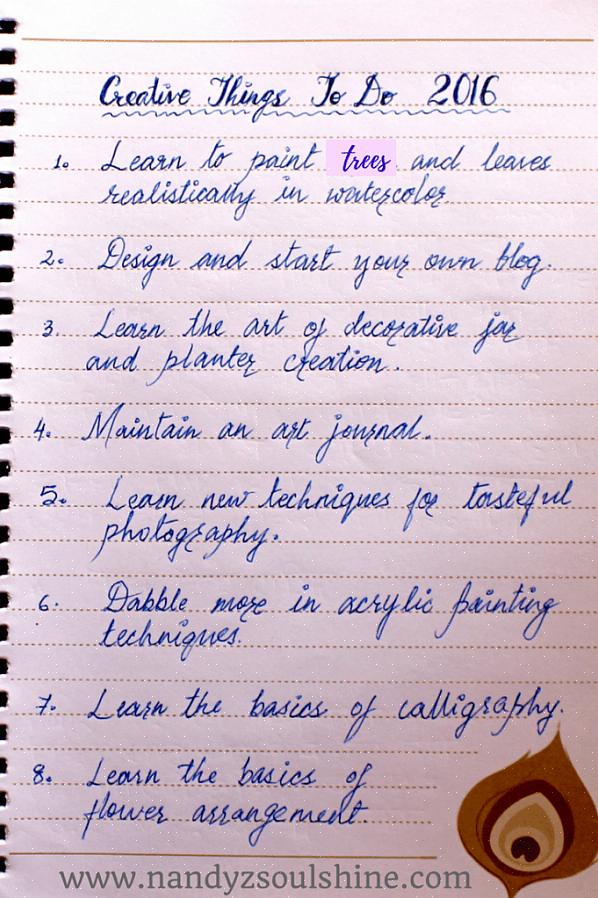 Creative Things To Do 2016
1. Learn to paint trees and leaves
realistically in watercolor
2. Design and start your own blog.
3. Learn the art of decorative jar
and planter creation.
4. Maintain an art journal.
5. Learn new techniques for tasteful
photography.
6. Dabble more in acrylic painting
techniques.
7. Learn the basics of calligraphy.
8. Learn the basics of
flower arrangement.
www.nandyzsoulshine.com